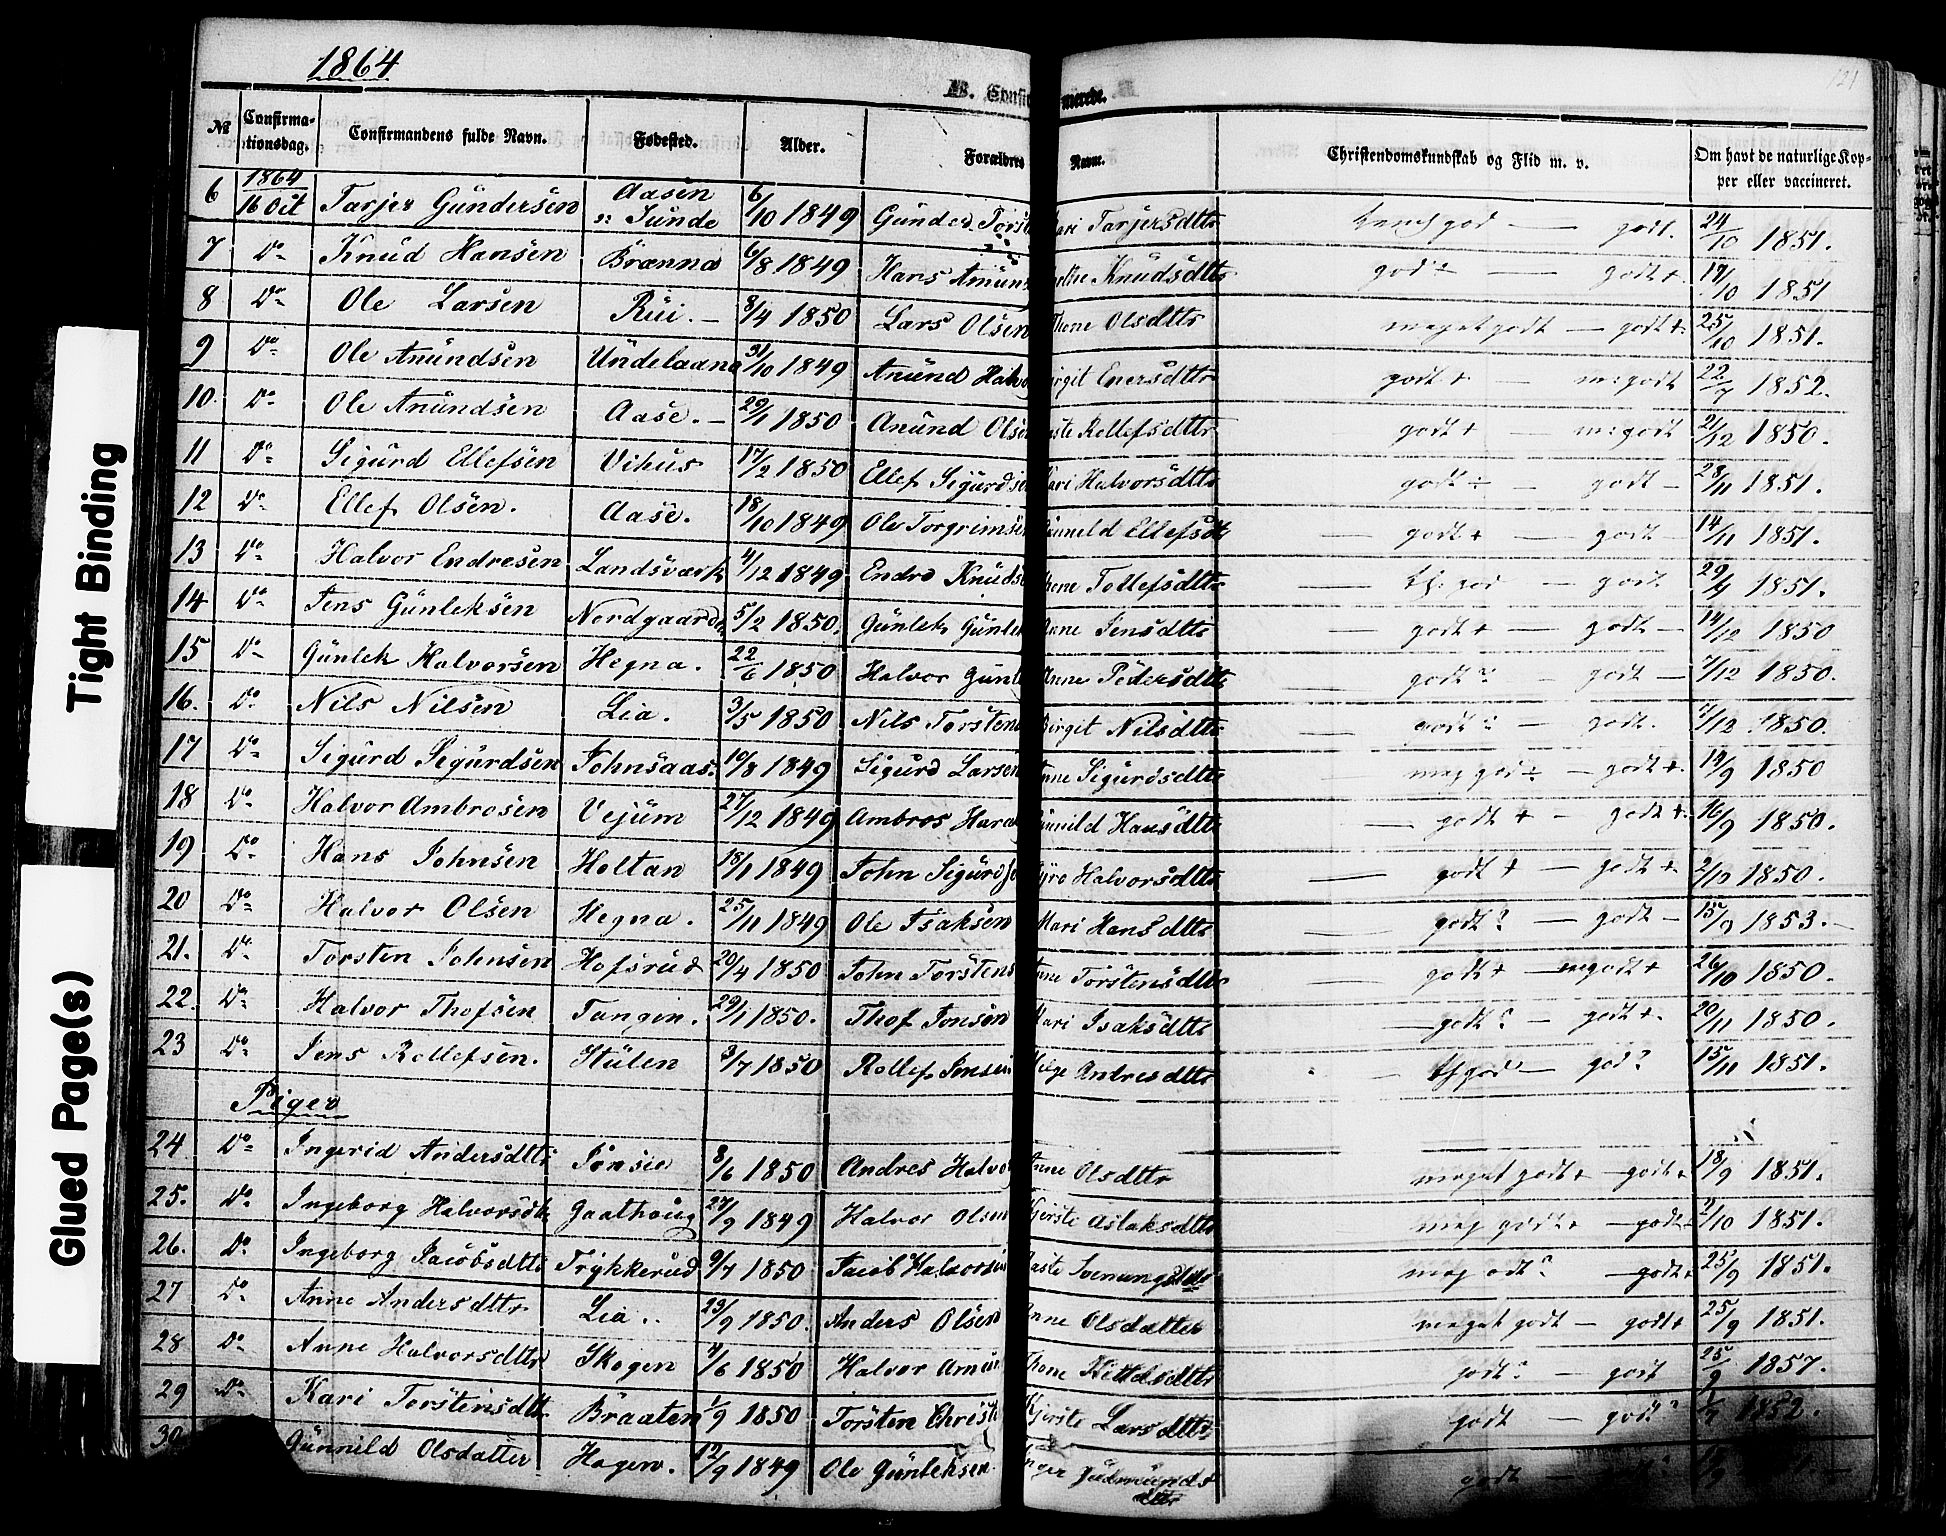 1864
B. Confirmerede.
121
№ Confirmationsdag. Confirmandens fulde Navn. Fødested. Alder. Forældres Navne. Christendomskundskab og Flid m. v. Om havt de naturlige Kopper eller vaccineret.
6 1864 16 Oct Tarjer Gundersen Aasen Sunde 6/10 1849 Gunder Torst Kari Tarjersdttr god — godt. 24/10 1851.
7 Do Knud Hansen Brænna 6/8 1849 Hans Amunds Knudsdttr god + — godt + 17/10 1851
8 Do Ole Larsen Rui. — 8/4 1850 Lars Olsen Thone Olsdttr meget godt — godt +. 25/10 1851.
9 Do Ole Anundsen Undelaand 31/10 1849 Anund Halv Birgit Enersdttr godt + — m: godt 22/7 1852.
10. Do Ole Anundsen Aase. — 29/1 1850 Anund Olsen Aaste Rollefsdttr godt + — m: godt 21/12 1850.
11 Do Sigurd Ellefsen Vihus 17/2 1850 Ellef Sigurdsen Kari Halvorsdttr godt + — godt — 28/11 1851.
12 Do Ellef Olsen. Aase. 18/10 1849 Ole Torgrimsen Gunnild Ellefsdtr — godt + — godt — 14/11 1851.
13 Do Halvor Endresen Landsværk 4/12 1849 Endre Knuds Thone Tollefsdttr — god — godt 29/9 1851.
14 Do Jens Gunleksen Nordgaarden 5/2 1850. Gunlek Gunlek Anne Jensdttr — godt + — godt — 14/12 1850
15 Do Gunlek Halvorsen Hegna. 22/6 1850 Halvor Gunl Anne Pedersdttr — godt? — godt — 7/12 1850.
16. Do Nils Nilsen Lia. 3/5 1850 Nils Torstens Birgit Nilsdttr — godt? — godt. 7/12 1850.
17 Do Sigurd Sigurdsen Johnsaas. 10/8 1849 Sigurd Larsen Anne Sigurdsdttr — meg god + — godt +. 19/9 1850
18 Do Halvor Ambrosen Vejum 27/12 1849 Ambros Hara Gunnild Hansdttr — godt + — godt +. 16/9 1850.
19 Do Hans Johnsen Holtan 18/1 1849 John Sigurds Gyro Halvorsdttr — godt + — godt +. 2/10 1850.
20 Do Halvor Olsen Hegna. 25/11 1849 Ole Isaksen Mari Hansdttr — godt? — godt — 15/9 1853. —
21. Do Torsten Johnsen Hofsrud 20/4 1850 John Torstens Anne Torstensdttr godt + — mgodt + 26/10 1850.
22. Do Halvor Thofsen Tangen. 29/1 1850. Thof Jonsen Mari Isaksdttr — godt? — godt +. 20/11 1850.
23 Do Jens Rollefsen. Stulen 3/7 1850 Rollef Jensen Helge Andresdttr god — god? 15/11 1851.
Piger
24 Do Ingerid Andersdttr Jonsie 8/6 1850 Andres Halvo Anne Olsdttr meget godt + — godt + 18/9 1851.
25. Do Ingeborg Halvorsdtr Gaathoug 27/9 1849 Halvor Olsen Kjersti Aslaksdttr meg godt + — godt + 2/10 1851.
26. Do Ingeborg Jacobsdttr Trykkerud 9/7 1850 Jacob Halvorsen Aaste Svenungsdttr meg odt? — godt + 25/9 1851.
27 Do Anne Andersdttr Lia.. 23/9 1850. Anders Olsen Anne Olsdatter meget godt — godt + 25/9 1851.
28 Do Anne Halvorsdttr Skogen 4/6 1850 Halvor Amun Thone Kittelsdttr godt? — godt 25/9 1857.
29 Do Kari Torstensdttr Braaten 1/9 1850 Torsten Christe Kjersti Larsdttr godt — godt? 1/7 1852.
30 Gunnild Olsdatter Hagen. 12/9 1849 Ole Gunleksen Inger Gudmundsdttr godt
Tight Binding
Glued Page(s)